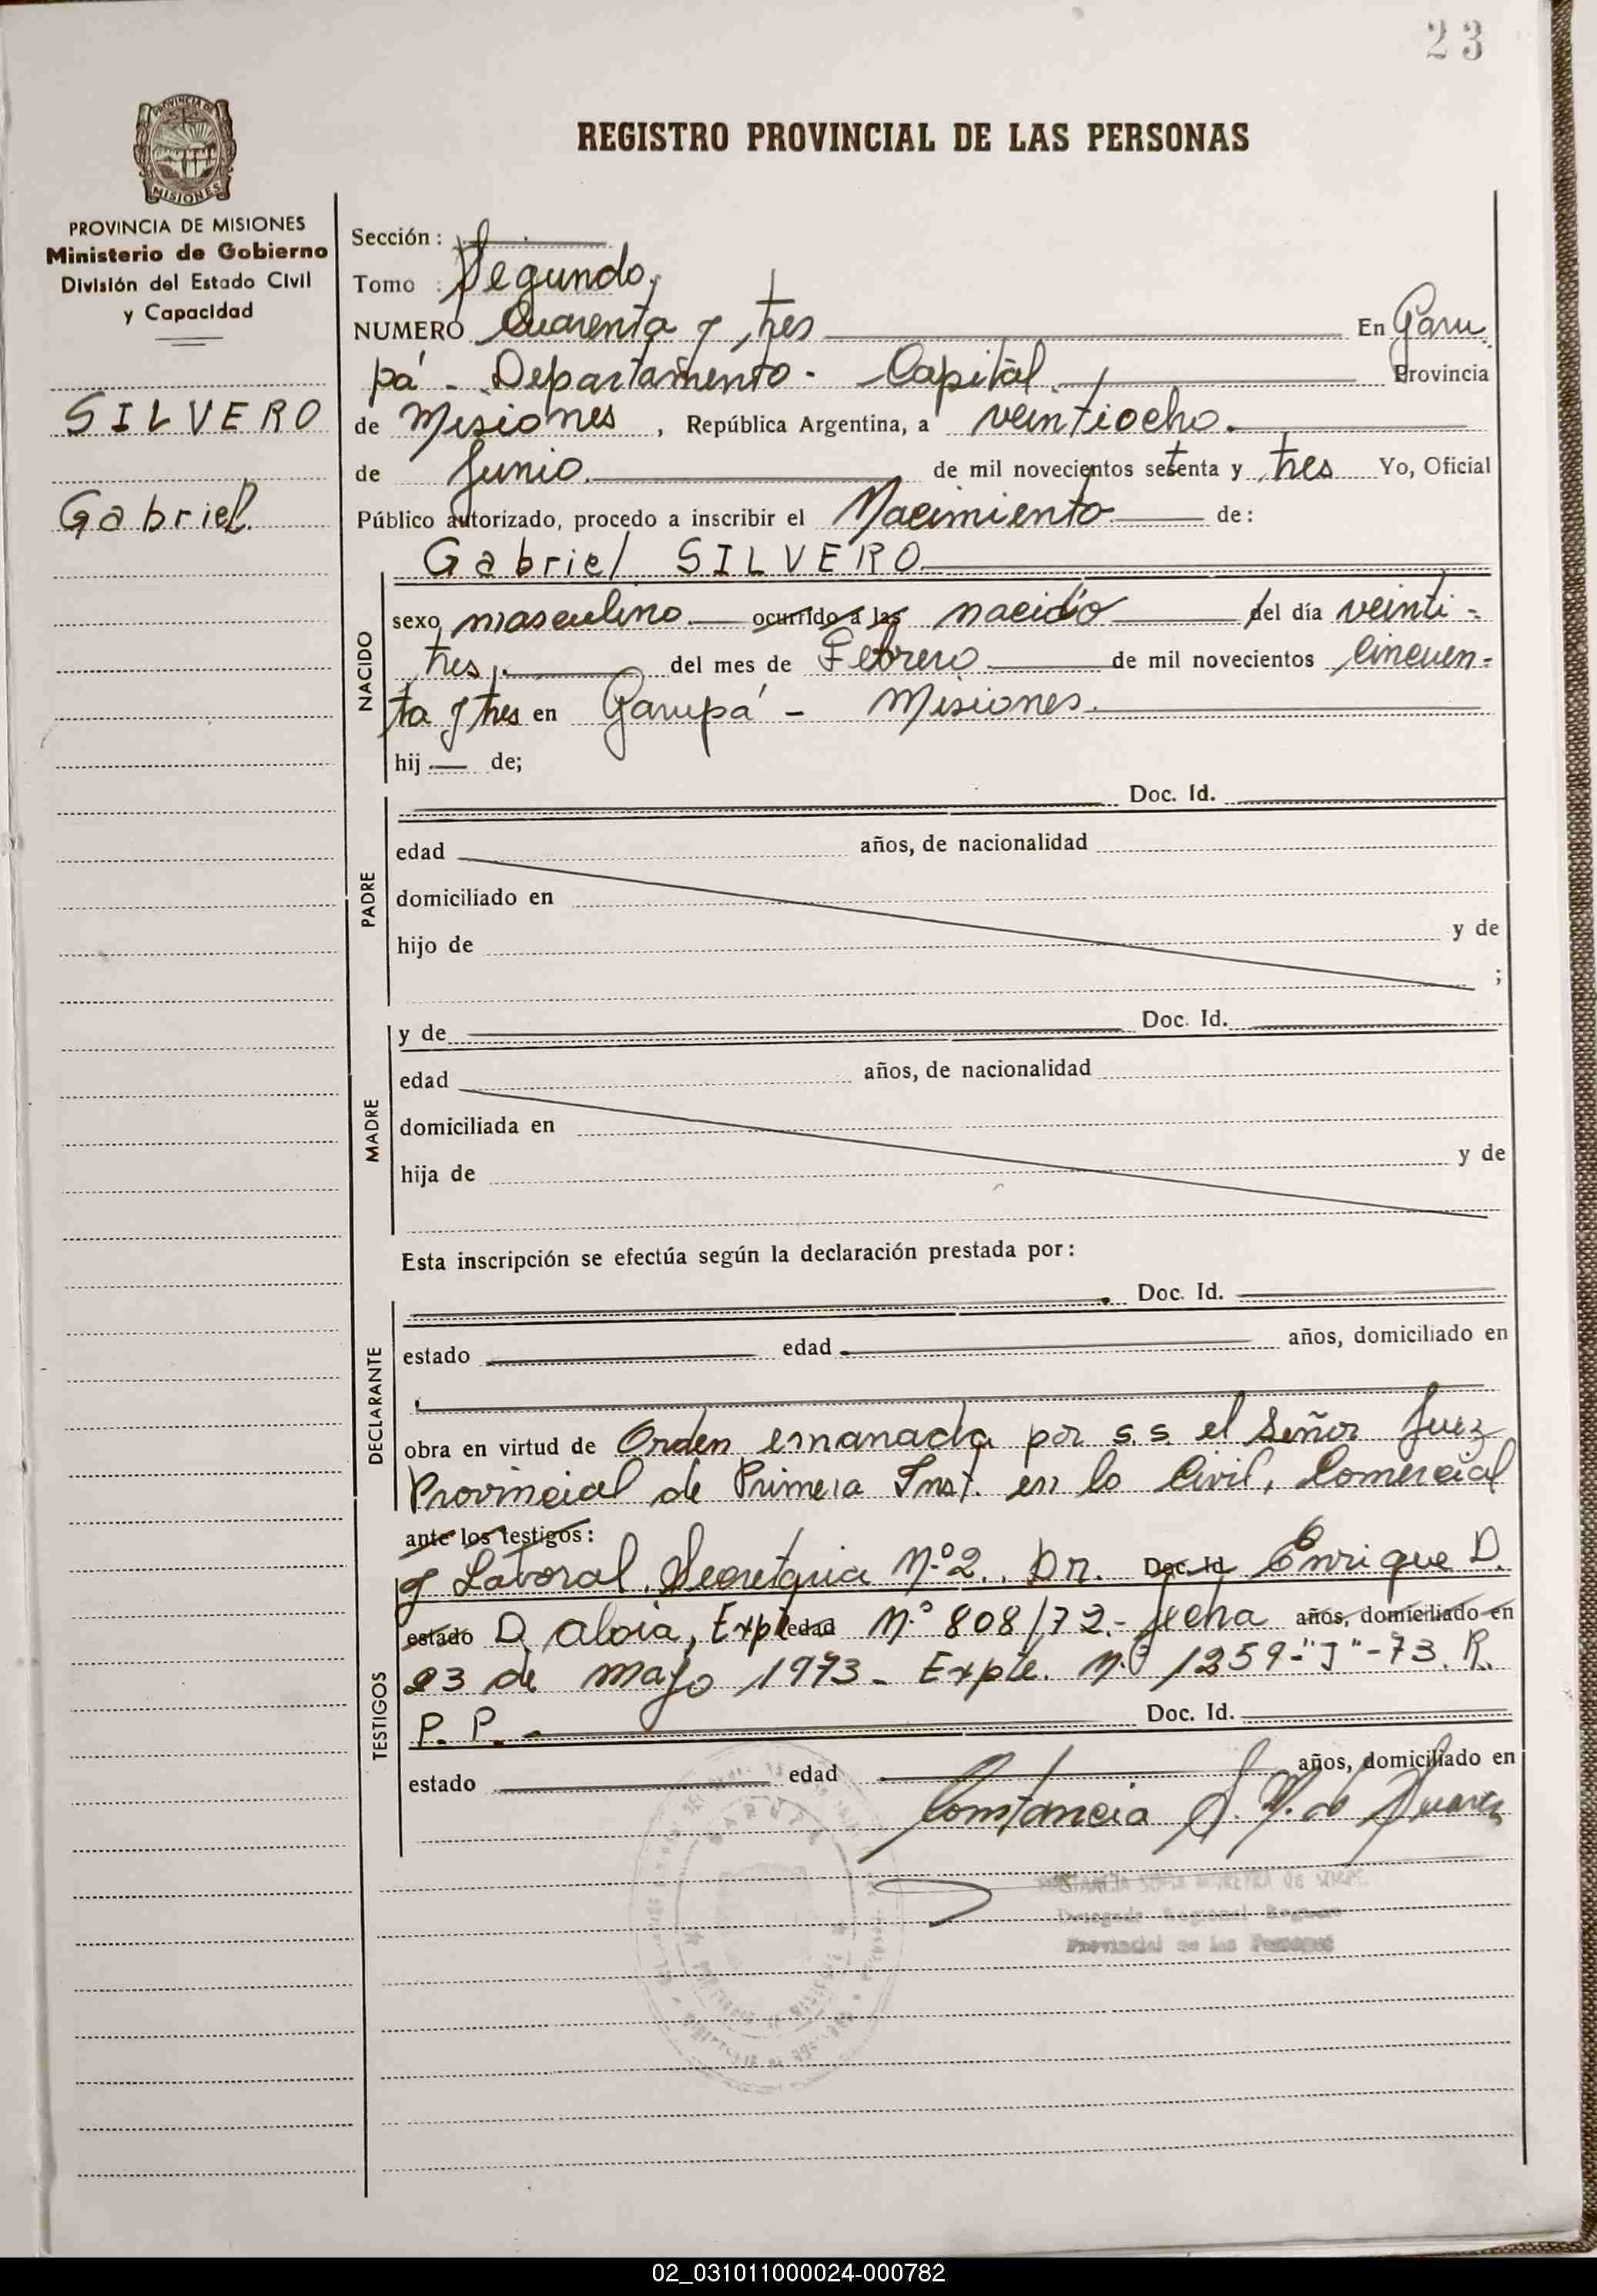 23
PROVINCIA DE
MISIONES
REGISTRO PROVINCIAL DE LAS PERSONAS
PROVINCIA DE MISIONES
Ministerio de Gobierno
División del Estado Civil
y Capacidad
SILVERO
Gabriel
Sección :
Tomo : Segundo,
NUMERO Cuarenta y tres En Garu
pá - Departamento - Capital. Provincia
de Misiones , República Argentina, a veintiocho.
de Junio. de mil novecientos setenta y tres Yo, Oficial
Público autorizado, procedo a inscribir el Nacimiento de:
Gabriel SILVERO
NACIDO
sexo masculino. ocurrido a las nacido del día veinti-
tres. del mes de Febrero de mil novecientos cincuen-
ta y tres en Garupá - Misiones.
hij de;
PADRE
Doc. Id.
edad años, de nacionalidad
domiciliado en
hijo de y de
;
MADRE
y de Doc. Id.
edad años, de nacionalidad
domiciliada en
hija de y de
Esta inscripción se efectúa según la declaración prestada por :
DECLARANTE
Doc. Id.
estado edad años, domiciliado en
obra en virtud de Orden emanada por s.s. el Señor Juez
Provincial de Primera Inst. en lo Civil, Comercial
ante los testigos :
TESTIGOS
y Laboral, Secretaria N.º 2. Dr. Doc. Id Enrique D.
estado D aloia, Expte edad N.º 808/72.- fecha años, domiciliado en
23 de mayo 1973 - Expte. N.º 1259-"J"-73. R.
P. P. - Doc. Id.
estado edad años, domiciliado en
Constancia S. M. de
Delegada Regional
Provincial de las Personas
02_031011000024-000782